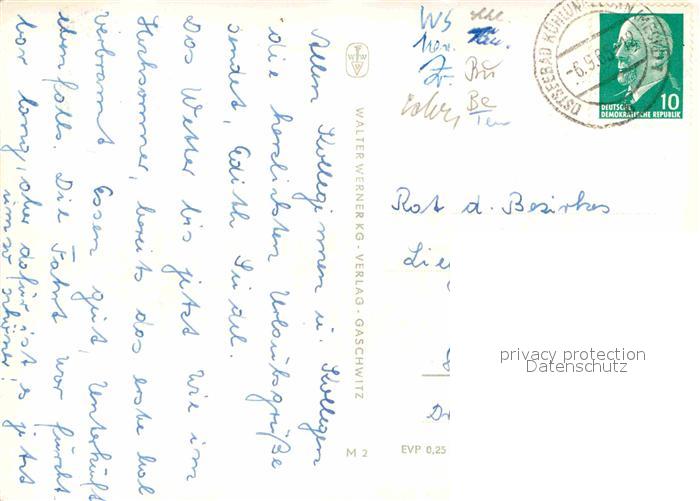 Allen Kolleginnen u. Kollegen
die herzlichsten Urlaubsgrüße
sendet, Edith
Das Wetter bis jetzt wie im
Hochsommer, bereits das erste Mal
verbrannt, Essen gut, Unterkunft
ebenfalls. Die Fahrt war furcht-
bar lang, aber dafür ist es jetzt
um so schöner!
WALTER WERNER KG - VERLAG - GASCHWITZ
M 2
EVP 0,25
WS
Bu
Be
OSTSEEBAD KÜHLUNGSBORN
-6.9.
DEUTSCHE
DEMOKRATISCHE REPUBLIK
10
Rat d. Bezirkes
privacy protection
Datenschutz